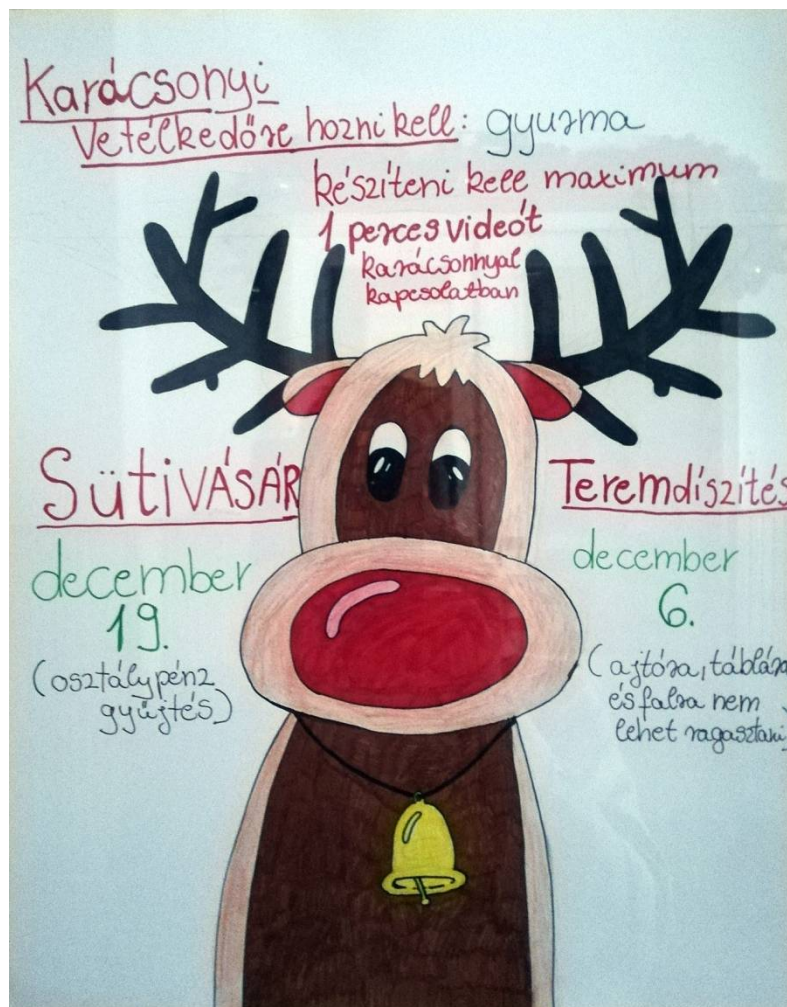 Karácsonyi
Vetélkedőre hozni kell: gyurma
készíteni kell maximum
1 perces videót
karácsonnyal
kapcsolatban
SütiVÁSÁR
december
19.
(osztálypénz
gyűjtés)
Teremdíszítés
december
6.
(ajtóra, táblára
és falra nem
lehet ragasztani)